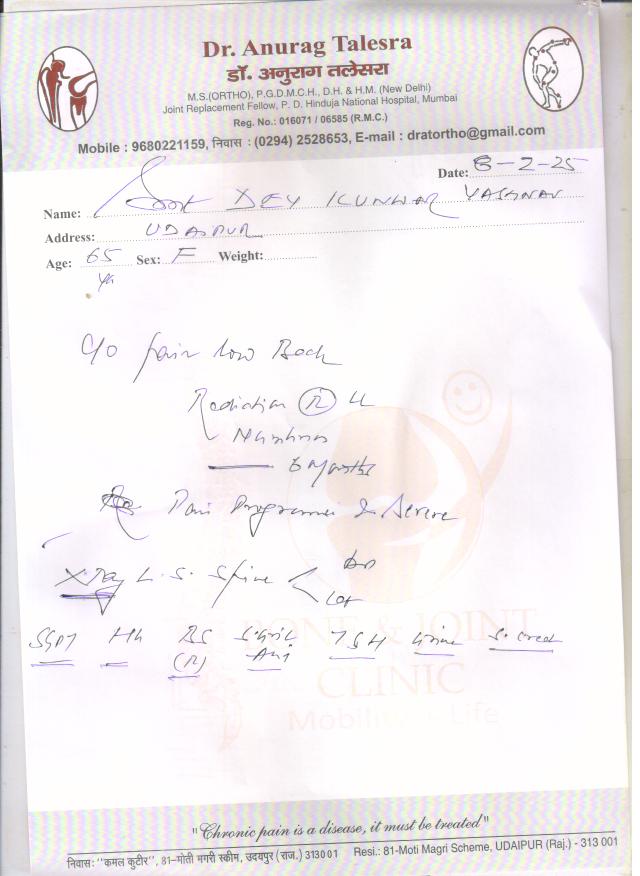 Dr. Anurag Talesra
डॉ. अनुराग तलेसरा
M.S.(ORTHO), P.G.D.M.C.H., D.H. & H.M. (New Delhi)
Joint Replacement Fellow, P. D. Hinduja National Hospital, Mumbai
Reg. No.: 016071 / 06585 (R.M.C.)
Mobile : 9680221159, निवास : (0294) 2528653, E-mail : dratortho@gmail.com
Date: 8-2-25
Name: Smt DEV KUNWAR VAISHNAV
Address: UDAIPUR
Age: 65 Sex: F Weight:
yr
C/o pain low Back
Radiation (R) LL
Numbness
6 Months
Pain Progressive & Severe
X Ray L.S. Spine < AP
Lat
SGPT Hb BS S. Uric TSH Urine S. Creat
(R) Acid
BONE & JOINT
CLINIC
Mobility Life
"Chronic pain is a disease, it must be treated"
निवास: "कमल कुटीर", 81-मोती मगरी स्कीम, उदयपुर (राज.) 313001 Resi.: 81-Moti Magri Scheme, UDAIPUR (Raj.) - 313 001